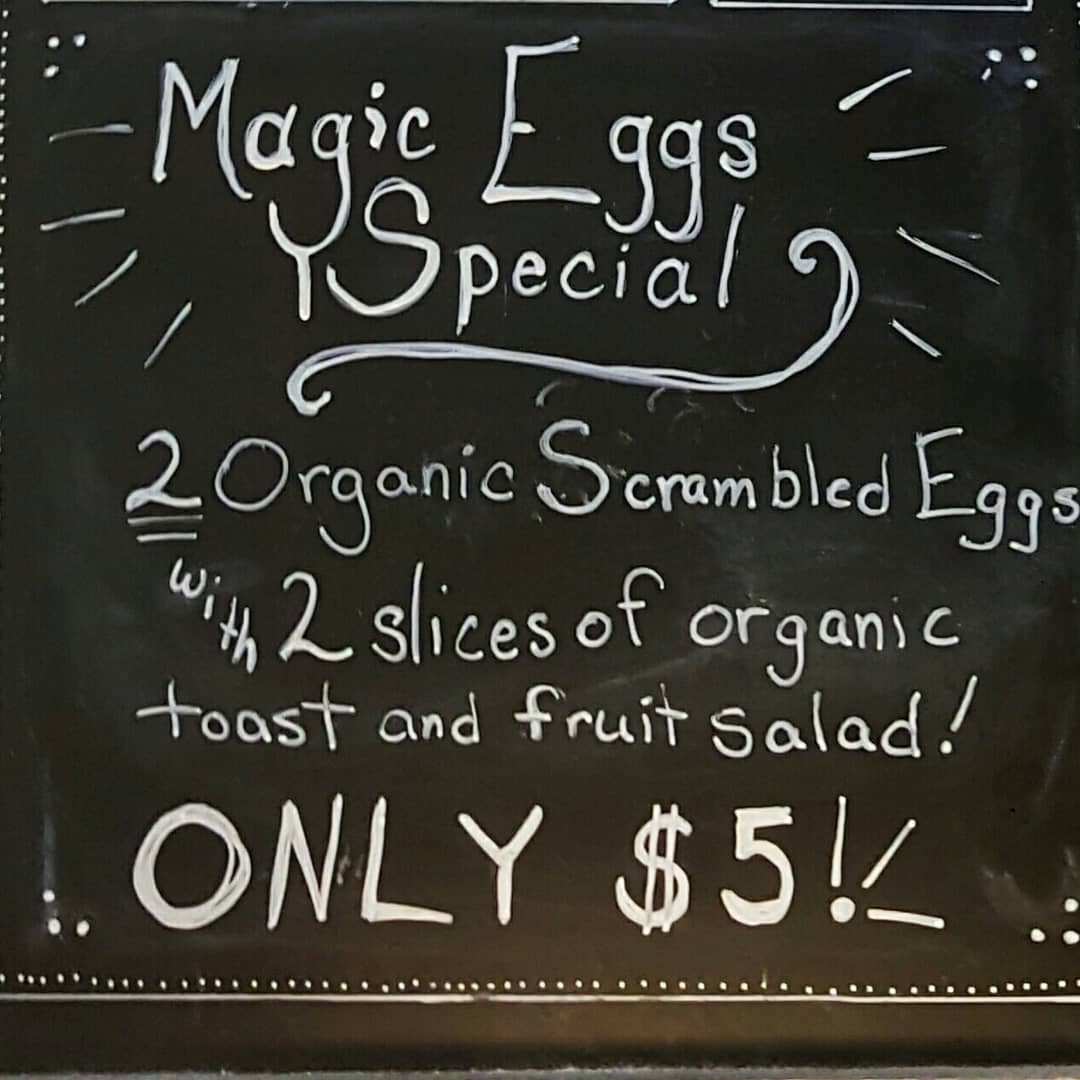 Magic Eggs
Special
2 Organic Scrambled Eggs
with 2 slices of organic
toast and fruit salad!
ONLY $5!